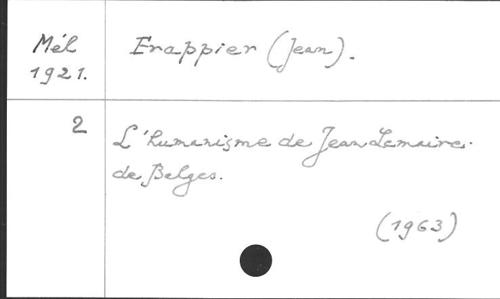 Mél Frappier (Jean).
1921.
2
L'humanisme de Jean Lemaire.
de Belges.
(1963)